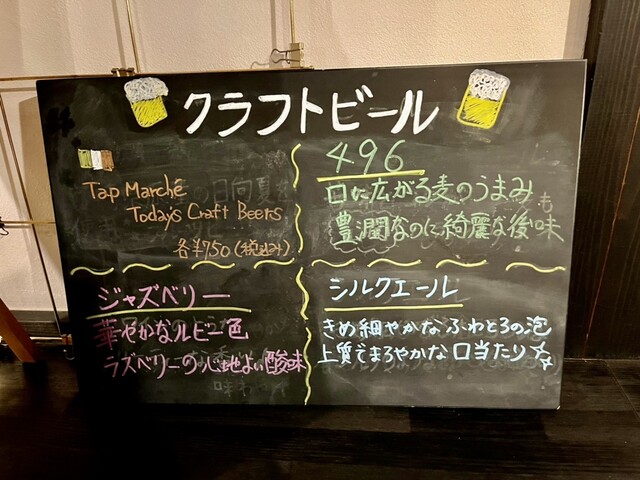 クラフトビール
Tap Marché
Todays Craft Beers
各¥750(税込み)
496
口に広がる麦のうまみ
豊潤なのに綺麗な後味
ジャズベリー
華やかなルビー色
ラズベリーの心地よい酸味
シルクエール
きめ細やかなふわとろの泡
上質でまろやかな口当たり